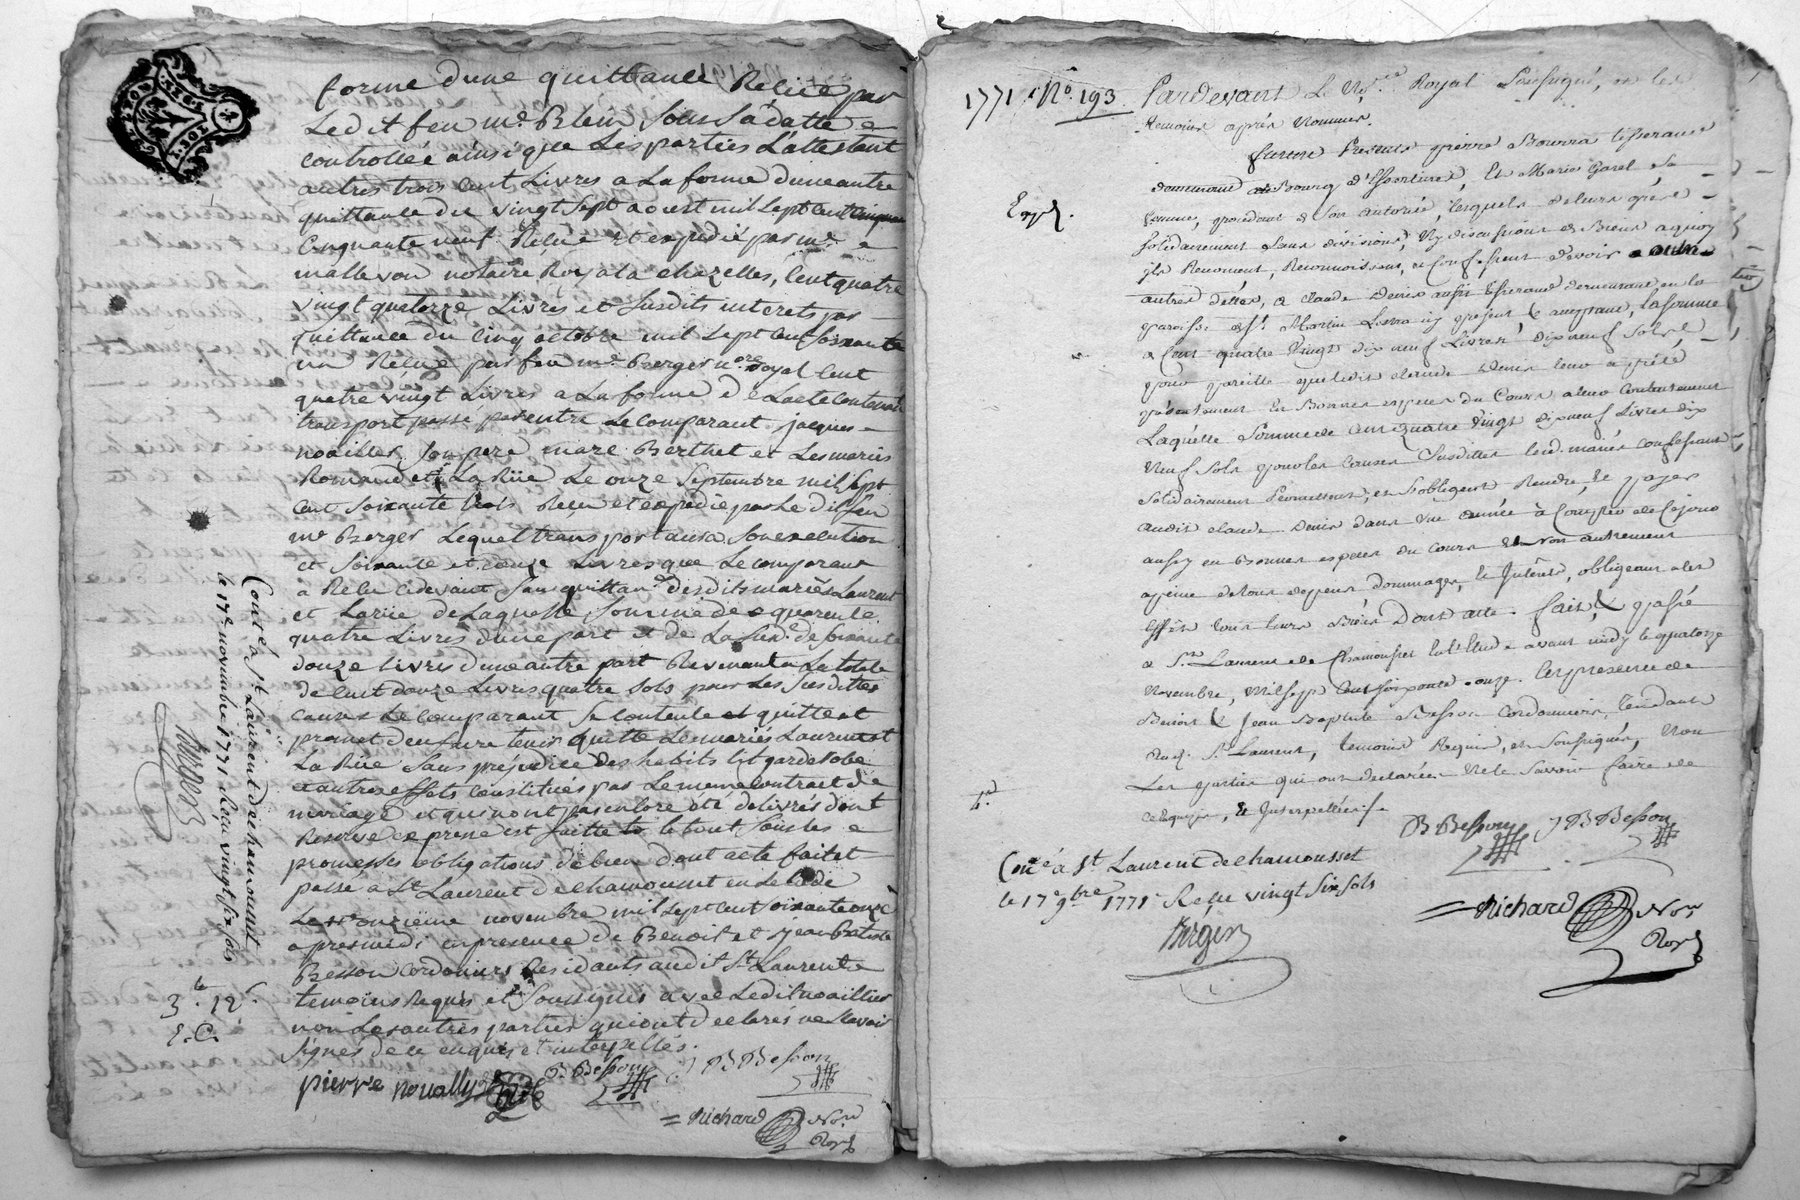 forme dune quittance Reliée par
Ledit feu me. Blein Sous Sa datte e
controllée ainsi que Les parties L'attestent
autres trois cent Livres a La forme dune autre
quittance du vingt Sept aoust mil Sept cent cinquan
Cinquante neuf Reçue et expedié par me. e
notaire Royal a chazelles, Cent quatre
vingt quatorze Livres et Susdits interets par
quittance du Cinq octobre mil Sept cent Soixante
un Reçue par feu me. Berger nore. Royal Cent
quatre vingt Livres a La forme de Lacte Contenant
transport passé parentre Le Comparant jacques
noailler Son pere marc Berthet et Les mariés
Romand et La Rüe Le onze Septembre mil Sept
cent Soixante trois Reçu et expedié par Le dit feu
me Berger Lequel transport aura Son execution
et Soixante et douze Livres que Le Comparant
à Reçu cidevant Sans quittance desdits mariés Laurent
et Larüe de Laquelle Somme de quarente
quatre Livres dune part et de La Sude. de Soixante
douze Livres dune autre part Revenant en La totale
de Cent douze Livres quatre Sols pour Les Susdittes
Causes Le Comparant Se Contente et quitte et
promet den faire tenir quitte Les mariés Laurent et
La Rüe Sans préjudice des habits lit garderobe
et autres effets Constitués par Le meme Contrat de
mariage et qui nont pas encore été delivrés dont
Reserve expresse est faitte Le tout Sous Les e
promesses obligations de bien dont acte fait et
passé à St. Laurent de Chamousset en Letude
Le onzieme novembre mil Sept cent Soixante onze
apres midi en presence de Benoit et jean Batiste
Besson cordoniers Residants audit St Laurent e
temoins Requis et Soussignés avec Ledit noaillier
non Les autres parties qui ont declarés ne Savoir
Signer de ce enquis et interpellés.
pierre novally B Besson JB Besson
= Richard Nore.
Royal
Conté. à St. Laurent de chamousset
le 17e. novembre 1771 Recu vingt six sols
3tt. 12s.
E. C.
1771. No. 193. Pardevant Le Nore. Royal Soussigné, et les
temoins aprés Nommés.
furent Presents pierre Bourra tisserand
demeurant au Bourg d'Essertines, Et Marie Garel, Sa
femme, procedant de Son autorité, lesquels de leurs gré et
Solidairement Sans division, Ny discussion de Biens a quoy
ils Renoncent, Reconnoissent, et Confessent devoir outre
autres dettes, a claude Denis aussi tisserand demeurant en la
paroisse de St. Martin present & acceptant, la Somme
de Cent quatre Vingt dix neuf Livres dix neuf Sols,
pour pareille que ledit claude Denis leur a preté
presentement En Bonnes especes du Cours a leur Contentement
Laquelle Somme de Cent quatre Vingt dix neuf Livres dix
Neuf Sols pour les Causes Susdittes lesd. mariés confessants
Solidairement Promettent, et S'obligent Rendre, & payer
audit claude Denis dans une année à Compter de Cejour
aussy en Bonnes especes du Cours & non autrement
a peine de tous depens dommages, & Interets, obligeant a cet
Effet tous leurs Biens Dont acte. fait, & passé
a St. Laurent de Chamousset En l'Etude avant midy le quatorze
Novembre, mil Sept Cent Soixante onze. En presence de
Benoit & Jean Baptiste Besson Cordonniers, Residants
audt. St. Laurent, temoins Requis, et Soussignés, Non
Les parties qui ont declarées Ne le Savoir faire de
ce Enquis, & Interpellées./.
Exp.
B Besson JB Besson
Conté à St Laurent de chamousset
le 17e 9bre 1771 Reçu vingt Six Sols
= Richard Nore.
Royal